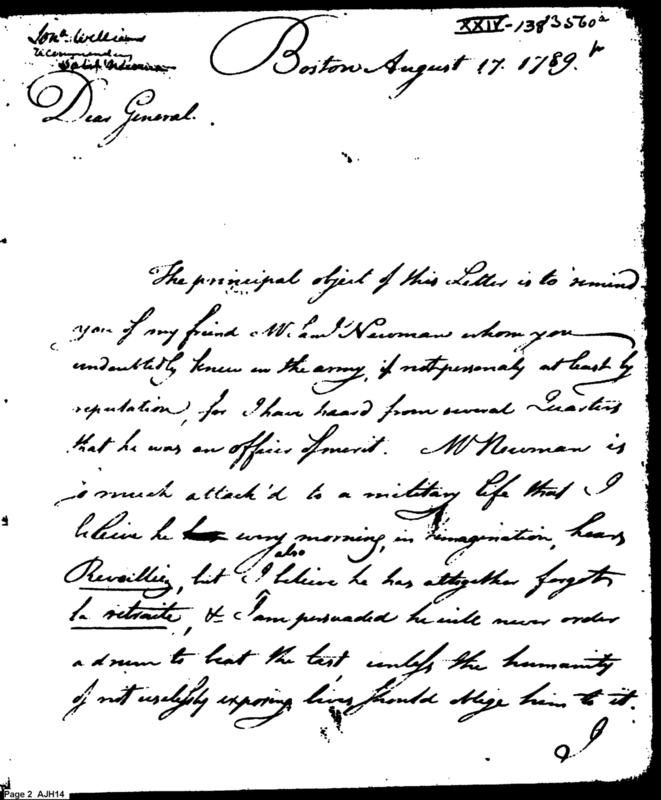 Jona. Williams
recommending
Saml. Newman
XXIV-138 3560a
Boston August 17. 1789.
Dear General.
The principal object of this Letter is to remind
you of my friend Mr. Saml Newman whom you
undoubtedly knew in the army, if not personaly at least by
reputation, for I have heard from several Quarters
that he was an officer of merit. Mr Newman is
so much attack'd to a military life that I
beleive he every morning, in immagination, hears
Reveillies, but I also beleive he has altogether forgot
la retraite, & I am persuaded he will never order
a drum to beat the last, unless the humanity
of not uselessly exposing lives should oblige him to it.
I
Page 2 AJH14